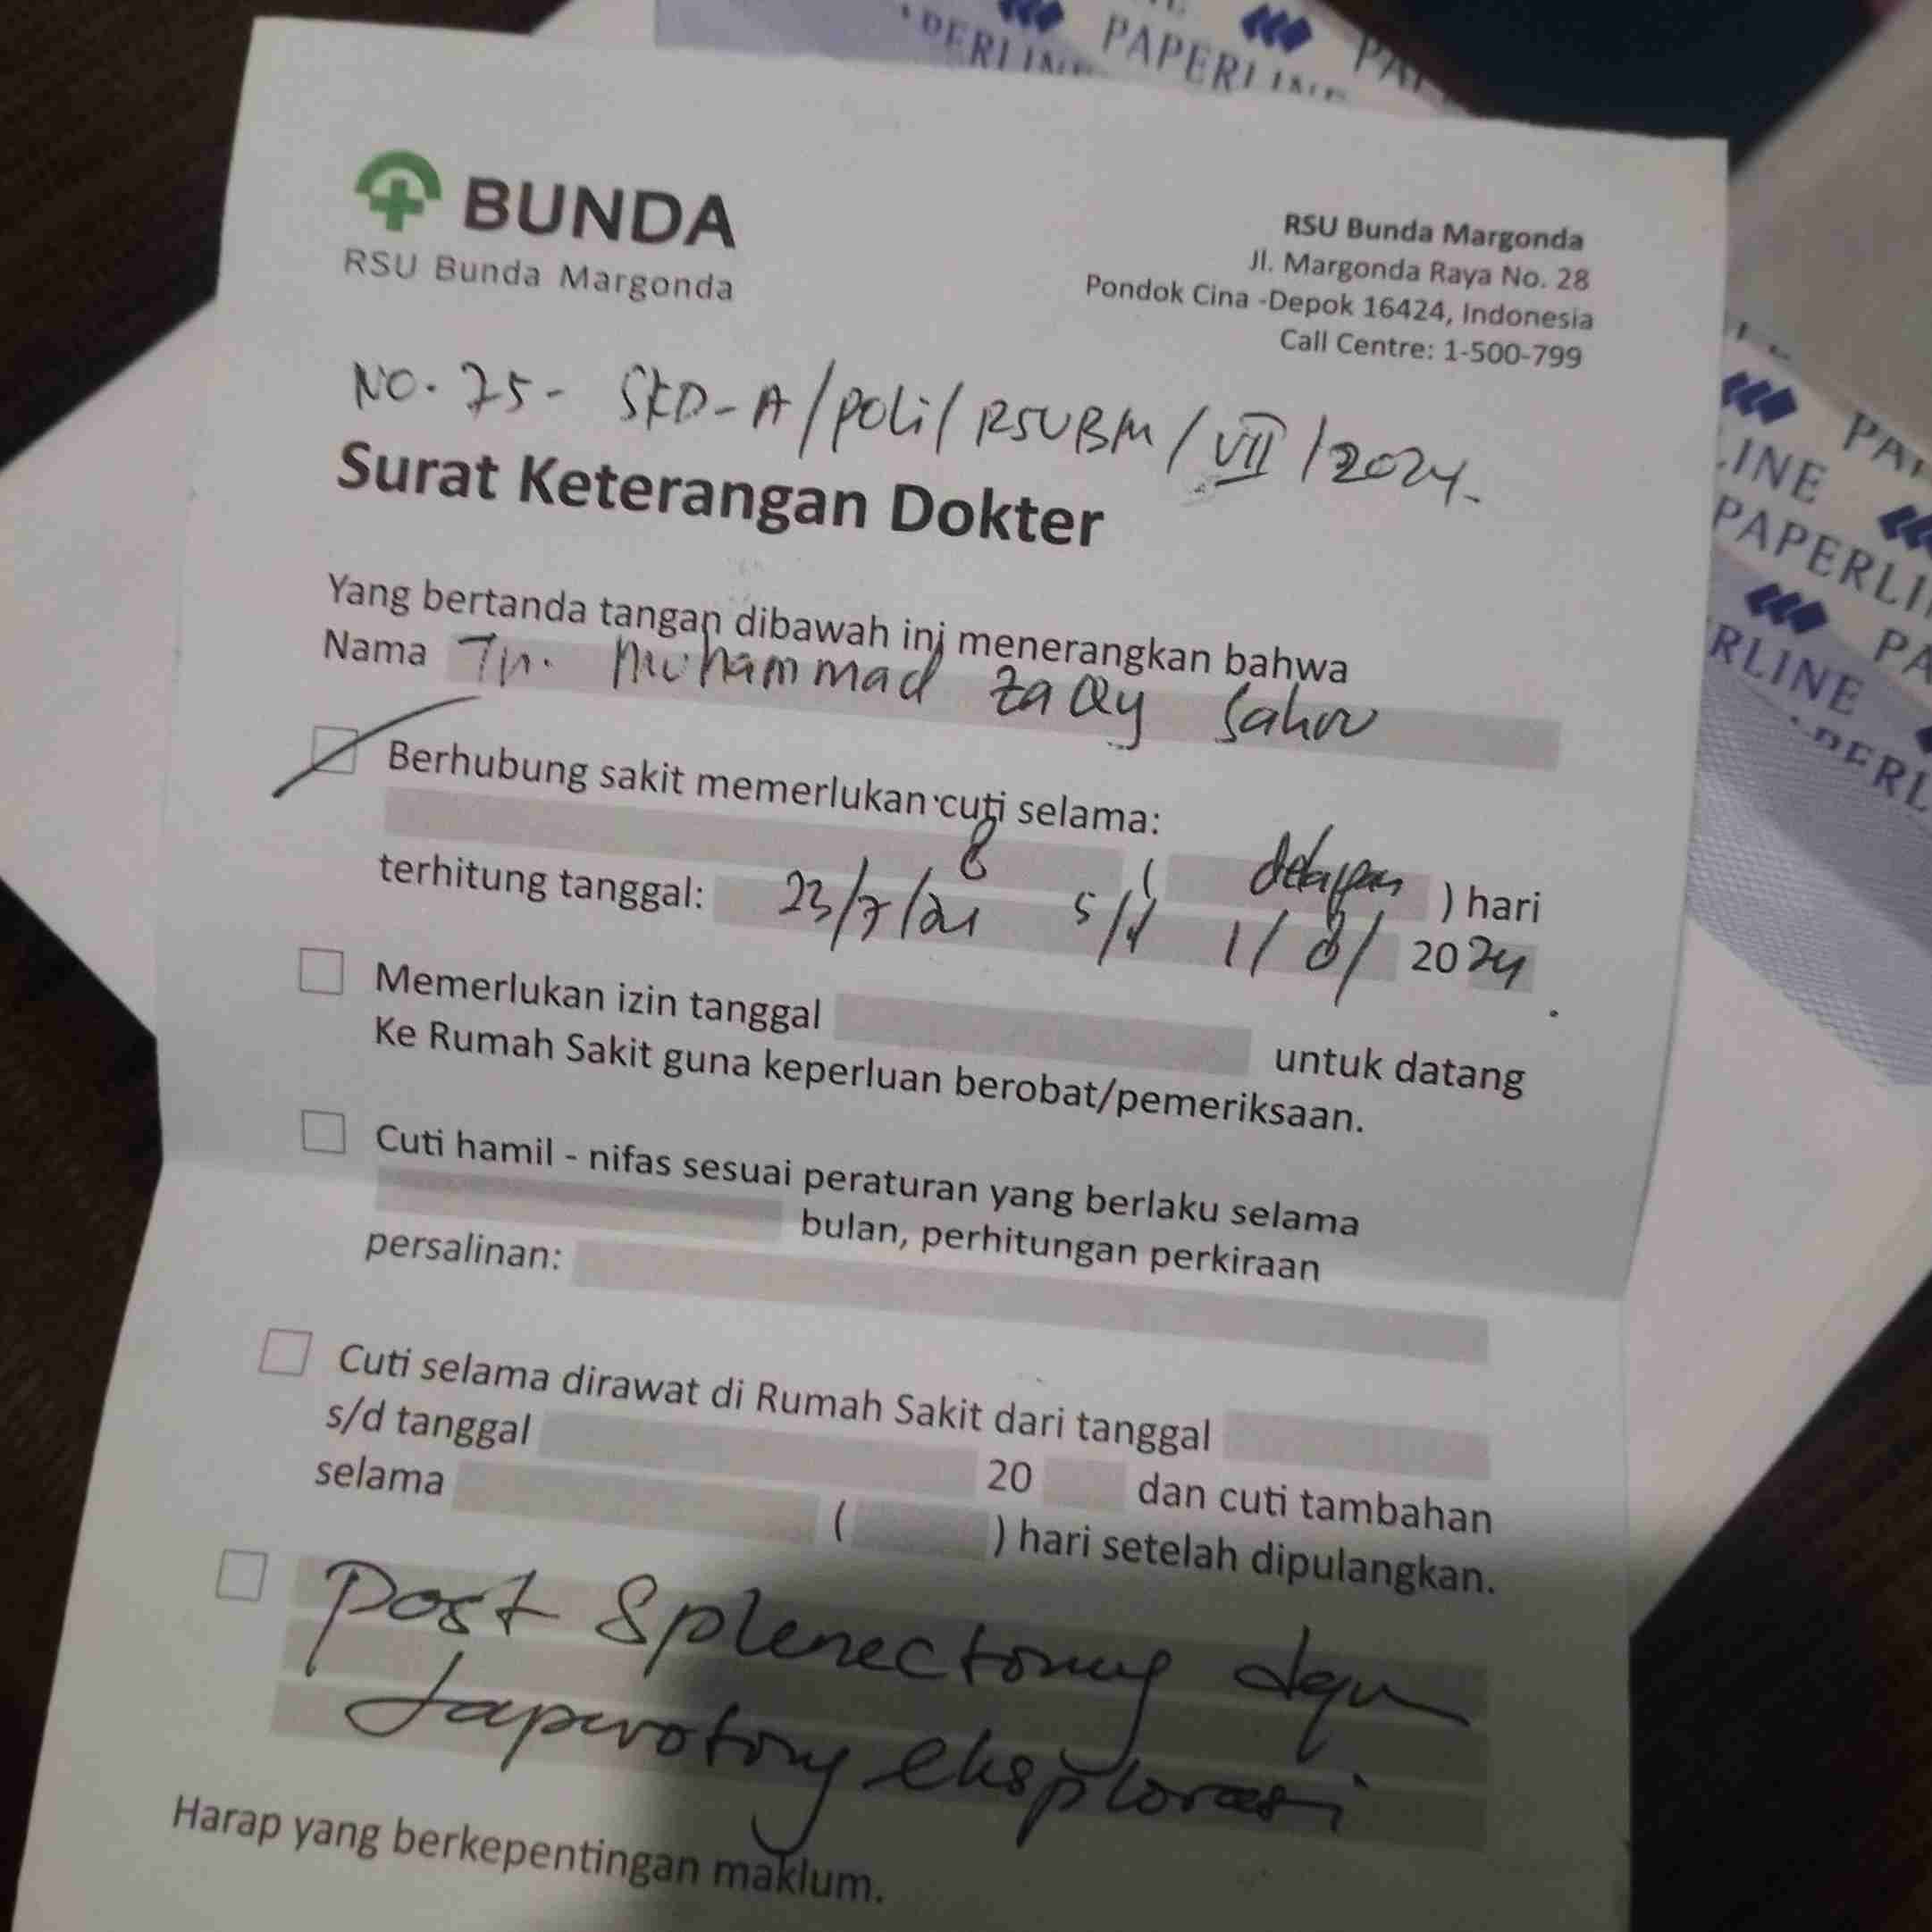 PAPERLINE PAPERLINE
BUNDA
RSU Bunda Margonda
RSU Bunda Margonda
Jl. Margonda Raya No. 28
Pondok Cina -Depok 16424, Indonesia
Call Centre: 1-500-799
No. 75- SKD-A/poli/RSUBM/VII/2024.
Surat Keterangan Dokter
Yang bertanda tangan dibawah ini menerangkan bahwa
Nama Tn. Muhammad Zaqy
Berhubung sakit memerlukan cuti selama:
8 ( delapan ) hari
terhitung tanggal: 23/7/24 s/d 1/8/ 2024
Memerlukan izin tanggal untuk datang
Ke Rumah Sakit guna keperluan berobat/pemeriksaan.
Cuti hamil - nifas sesuai peraturan yang berlaku selama
bulan, perhitungan perkiraan
persalinan:
Cuti selama dirawat di Rumah Sakit dari tanggal
s/d tanggal 20 dan cuti tambahan
selama ( ) hari setelah dipulangkan.
Post Splenectomy dgn
Laparotomy eksplorasi
Harap yang berkepentingan maklum.
PAPERLINE